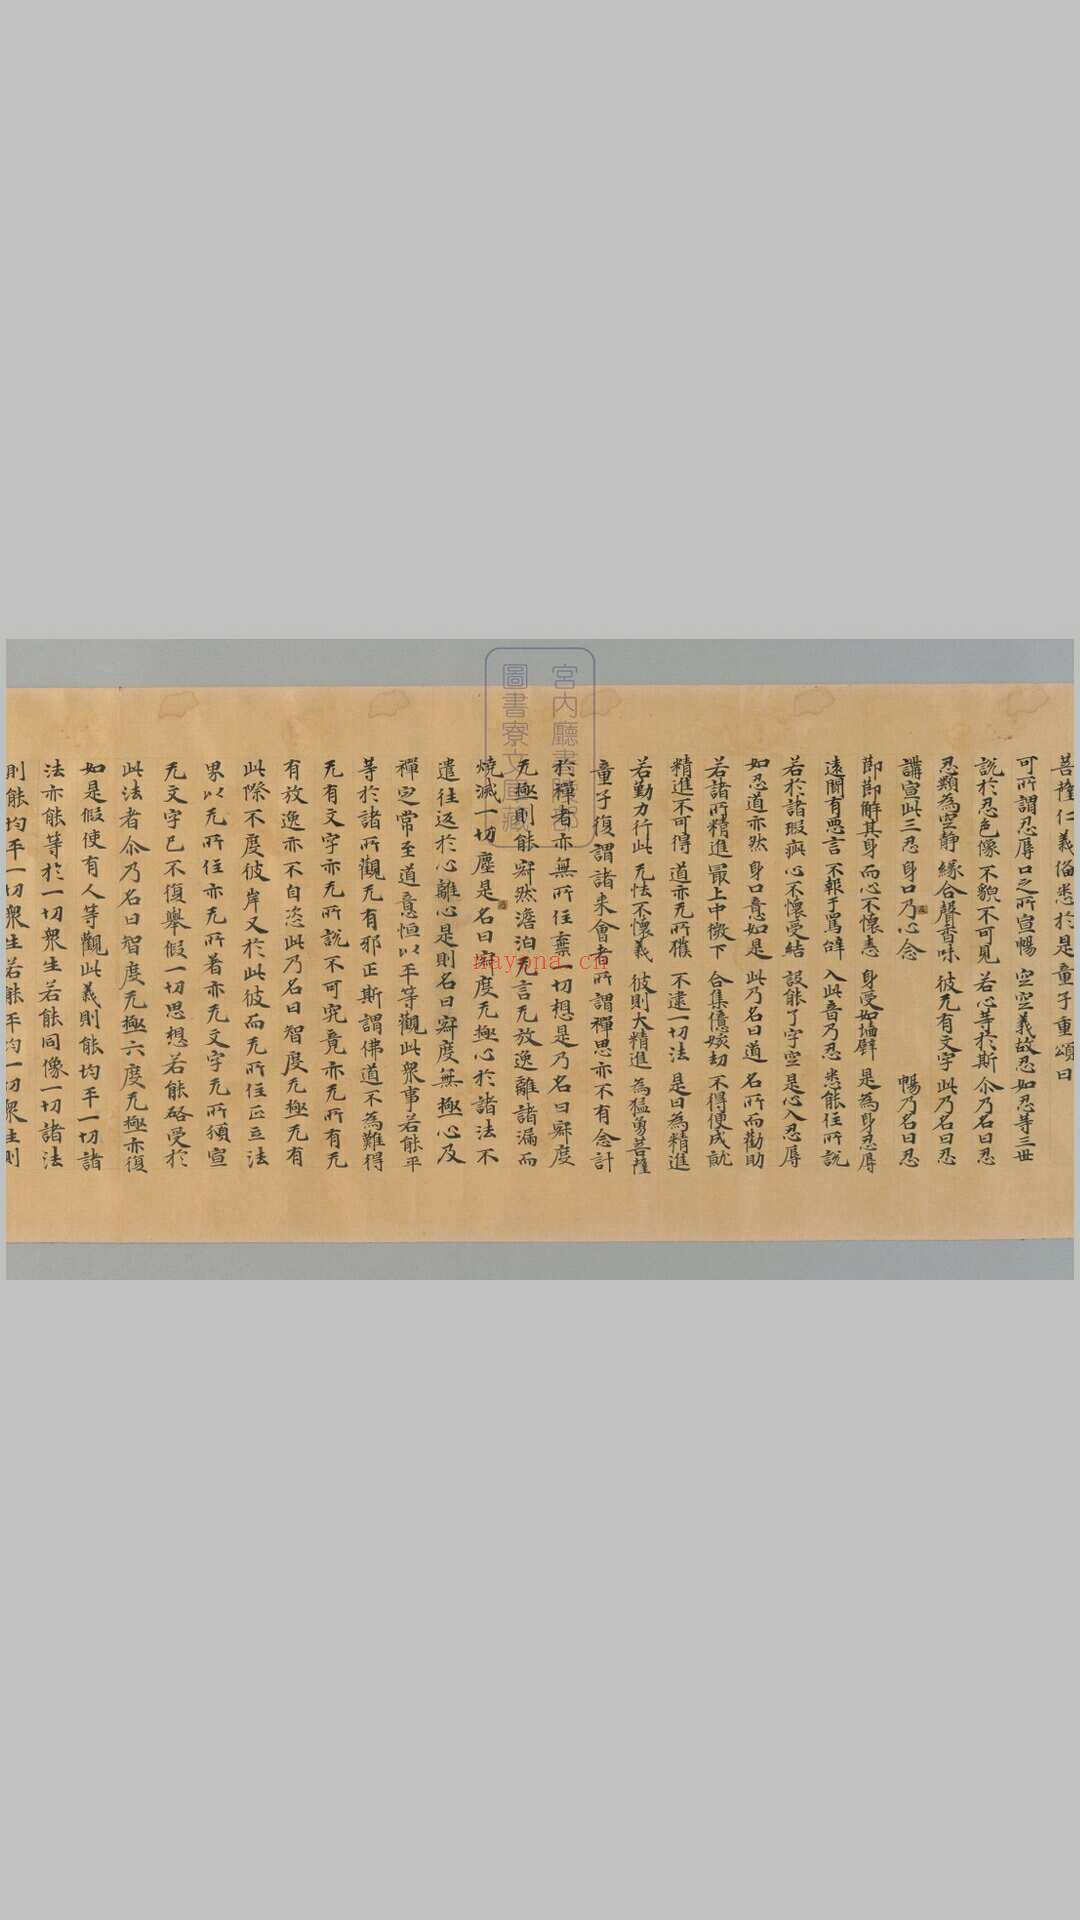 菩薩仁義備悉於是童子重頌曰
可所謂忍辱口之所宣暢 空空義故忍如忍等三世
說於忍色像 不貌不可見 若心等於斯 尒乃名曰忍
忍類為空靜 緣合聲香味 彼无有文字 此乃名曰忍
講宣此三忍 身口乃心念 暢乃名曰忍
節節解其身 而心不懷恚 身受如墻壁 是為身忍辱
遠聞有惡言 不報于罵 入此音乃忍 悉能住所說
若於諸瑕 心不懷受結 設能了字空 是心入忍辱
如忍道亦然 身口意如是 此乃名曰道 名所而勸助
若諸所精進 最上中微下 合集億姟劫 不得便成就
精進不可得 道亦无所獲 不逮一切法 是曰為精進
若勤力行此 无怯不懷義 彼則大精進 為猛勇菩薩
童子復謂諸來會者所謂禪思亦不有念計
於禪者亦無所住棄一切想是乃名曰寂度
无極則能寂然澹泊无言无放逸離諸漏而
燒滅一切塵是名曰寂度无極心於諸法不
遣往返於心離心是則名曰寂度無極心及
禪定常至道意恒以平等觀此衆事若能平
等於諸所觀无有邪正斯謂佛道不為難得
无有文字亦无所說不可究竟亦无所有无
有放逸亦不自恣此乃名曰智度无極无有
此際不度彼岸又於此彼而无所住正立法
界以无所住亦无所著亦无文字无所須宣
无文字已不復舉假一切思想若能啓受於
此法者尒乃名曰智度无極六度无極亦復
如是假使有人等觀此義則能均平一切諸
法亦能等於一切衆生若能同像一切諸法
則能均平一切衆生若能平均一切衆生則
宮內廳書陵部
圖書寮文庫藏
nayona.cn